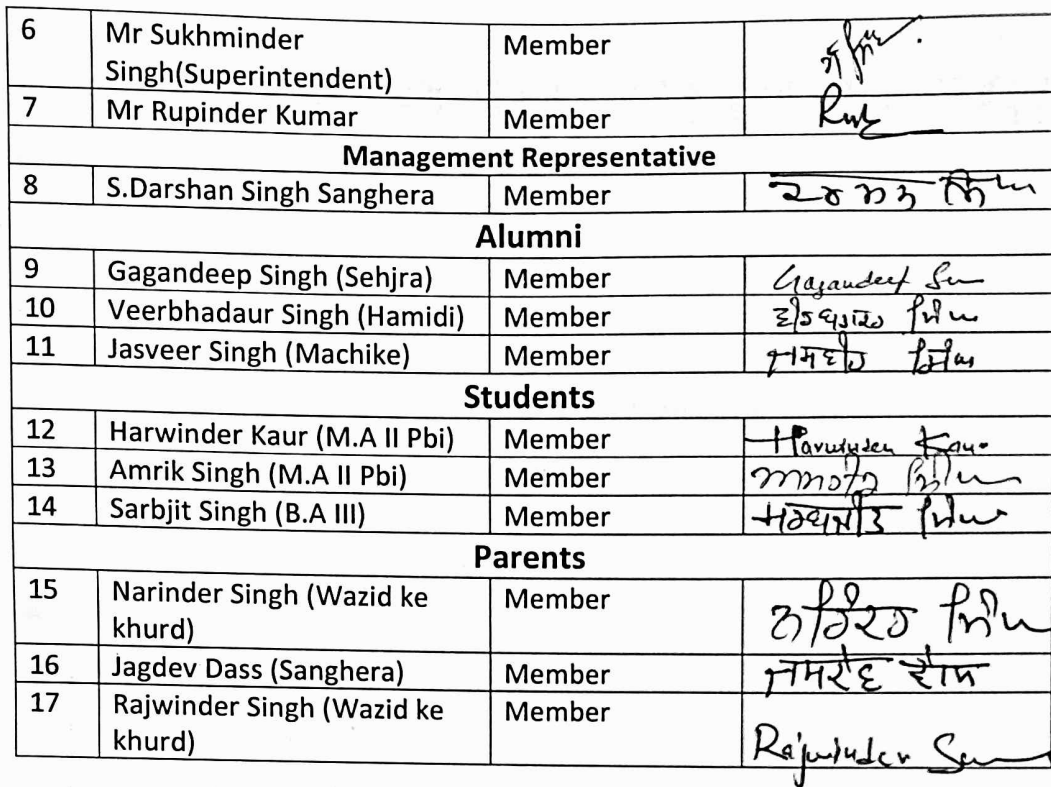 6 Mr Sukhminder Member
Singh(Superintendent)
7 Mr Rupinder Kumar Member
Management Representative
8 S.Darshan Singh Sanghera Member ਦਰਸ਼ਨ ਸਿੰਘ
Alumni
9 Gagandeep Singh (Sehjra) Member Gagandeep
10 Veerbhadaur Singh (Hamidi) Member ਸਿੰਘ
11 Jasveer Singh (Machike) Member ਜਸਵੀਰ ਸਿੰਘ
Students
12 Harwinder Kaur (M.A II Pbi) Member Harwinder Kaur
13 Amrik Singh (M.A II Pbi) Member ਸਿੰਘ
14 Sarbjit Singh (B.A III) Member ਸਰਬਜੀਤ ਸਿੰਘ
Parents
15 Narinder Singh (Wazid ke Member ਨਰਿੰਦਰ ਸਿੰਘ
khurd)
16 Jagdev Dass (Sanghera) Member
17 Rajwinder Singh (Wazid ke Member Rajwinder
khurd)